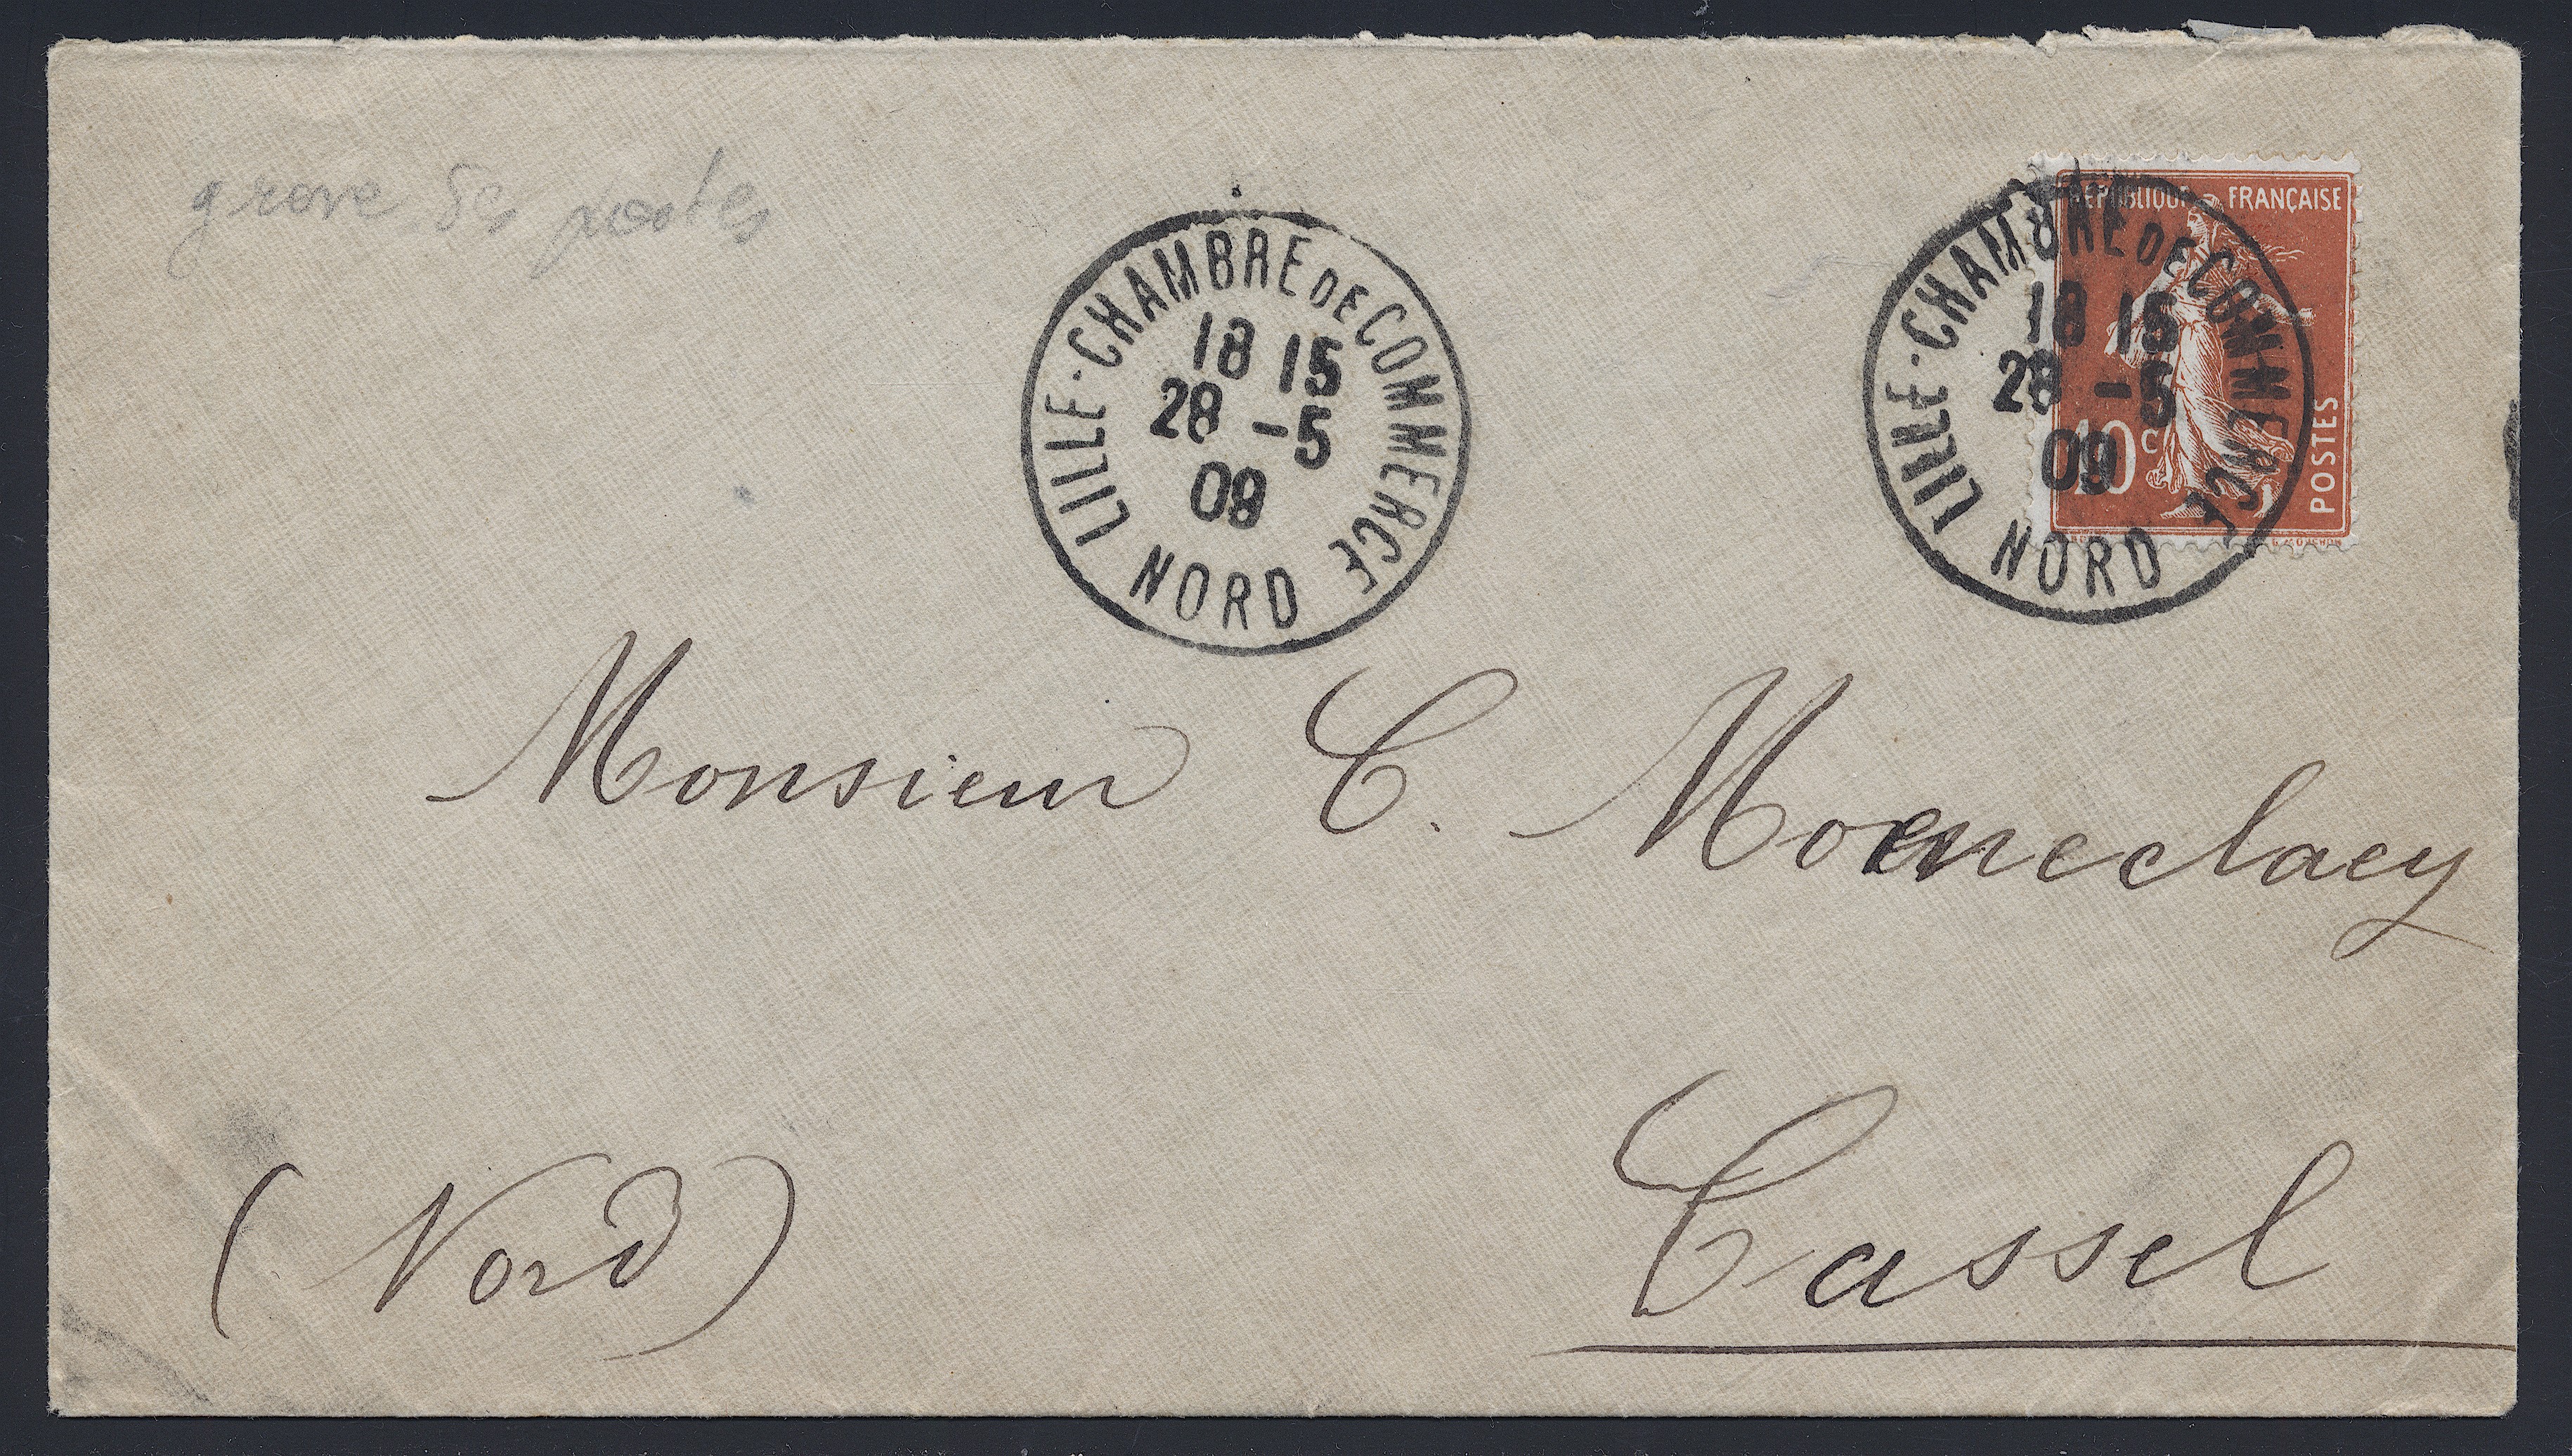 grève des postes
RÉPUBLIQUE FRANÇAISE
10c
POSTES
LILLE-CHAMBRE DE COMMERCE
18 15
28 -5
09
NORD
LILLE-CHAMBRE DE COMMERCE
18 15
28 -5
09
NORD
Monsieur C. Moeneclaey
Cassel
(Nord)